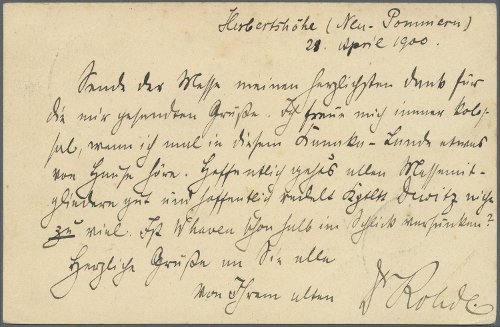 Herbertshöhe (Neu-Pommern)
21. April 1900.
Sende der Messe meinen herzlichsten Dank für
die mir gesendten Grüße. Ich freue mich immer kolos-
sal, wenn ich mal in diesem Kanaka-Lande etwas
von Hause höre. Hoffentlich gehts allen Messemit-
gliedern gut und hoffentlich redet Kptlt. nicht
zu viel. Ist W'haven schon halb im Schlick versunken?
Herzliche Grüße an Sie alle
von Ihrem alten Dr Rohde